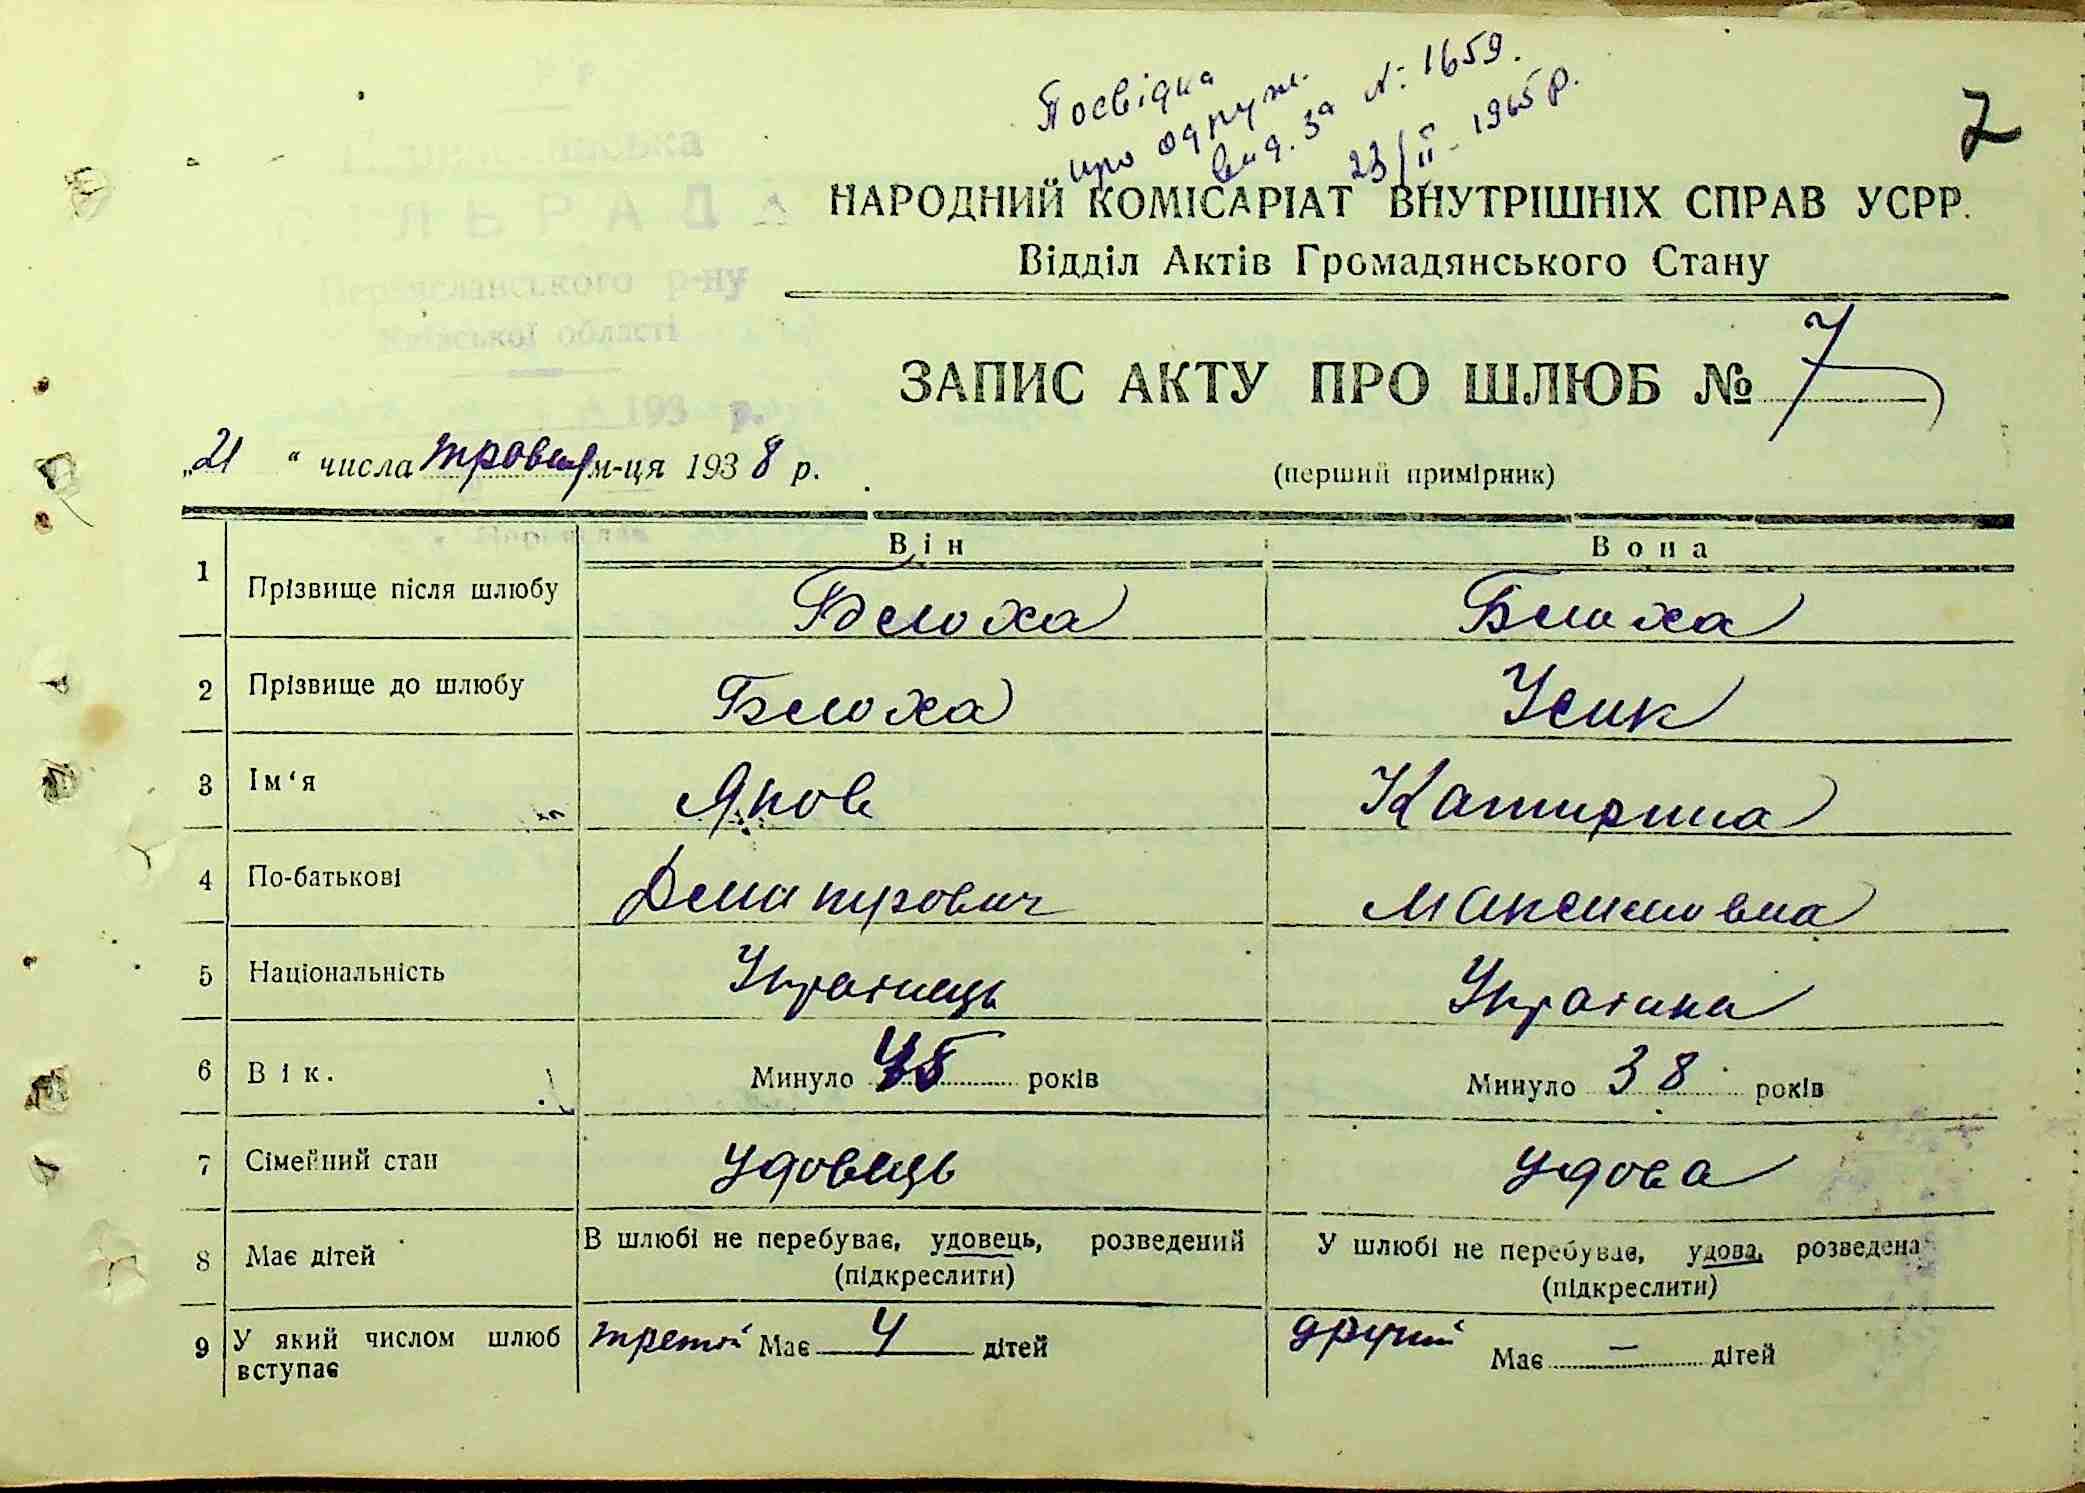 Посвідка
про одруж.
вид. за №: 1659.
23/II - 1965 р.
2
НАРОДНИЙ КОМІСАРІАТ ВНУТРІШНІХ СПРАВ УСРР.
Відділ Актів Громадянського Стану
ЗАПИС АКТУ ПРО ШЛЮБ № 7
„21 “ числа травня м-ця 1938 р.
(перший примірник)
Він Вона
1 Прізвище після шлюбу Белоха Белоха
2 Прізвище до шлюбу Белоха Усик
3 Ім‘я Яков Катирина
4 По-батькові Дмитрович Максимовна
5 Національність Українець Українка
6 Вік. Минуло 45 років Минуло 38 років
7 Сімейний стан удовець удова
8 Має дітей В шлюбі не перебуває, удовець, розведений У шлюбі не перебуває, удова, розведена
(підкреслити) (підкреслити)
9 У який числом шлюб вступає третій Має 4 дітей другий Має — дітей